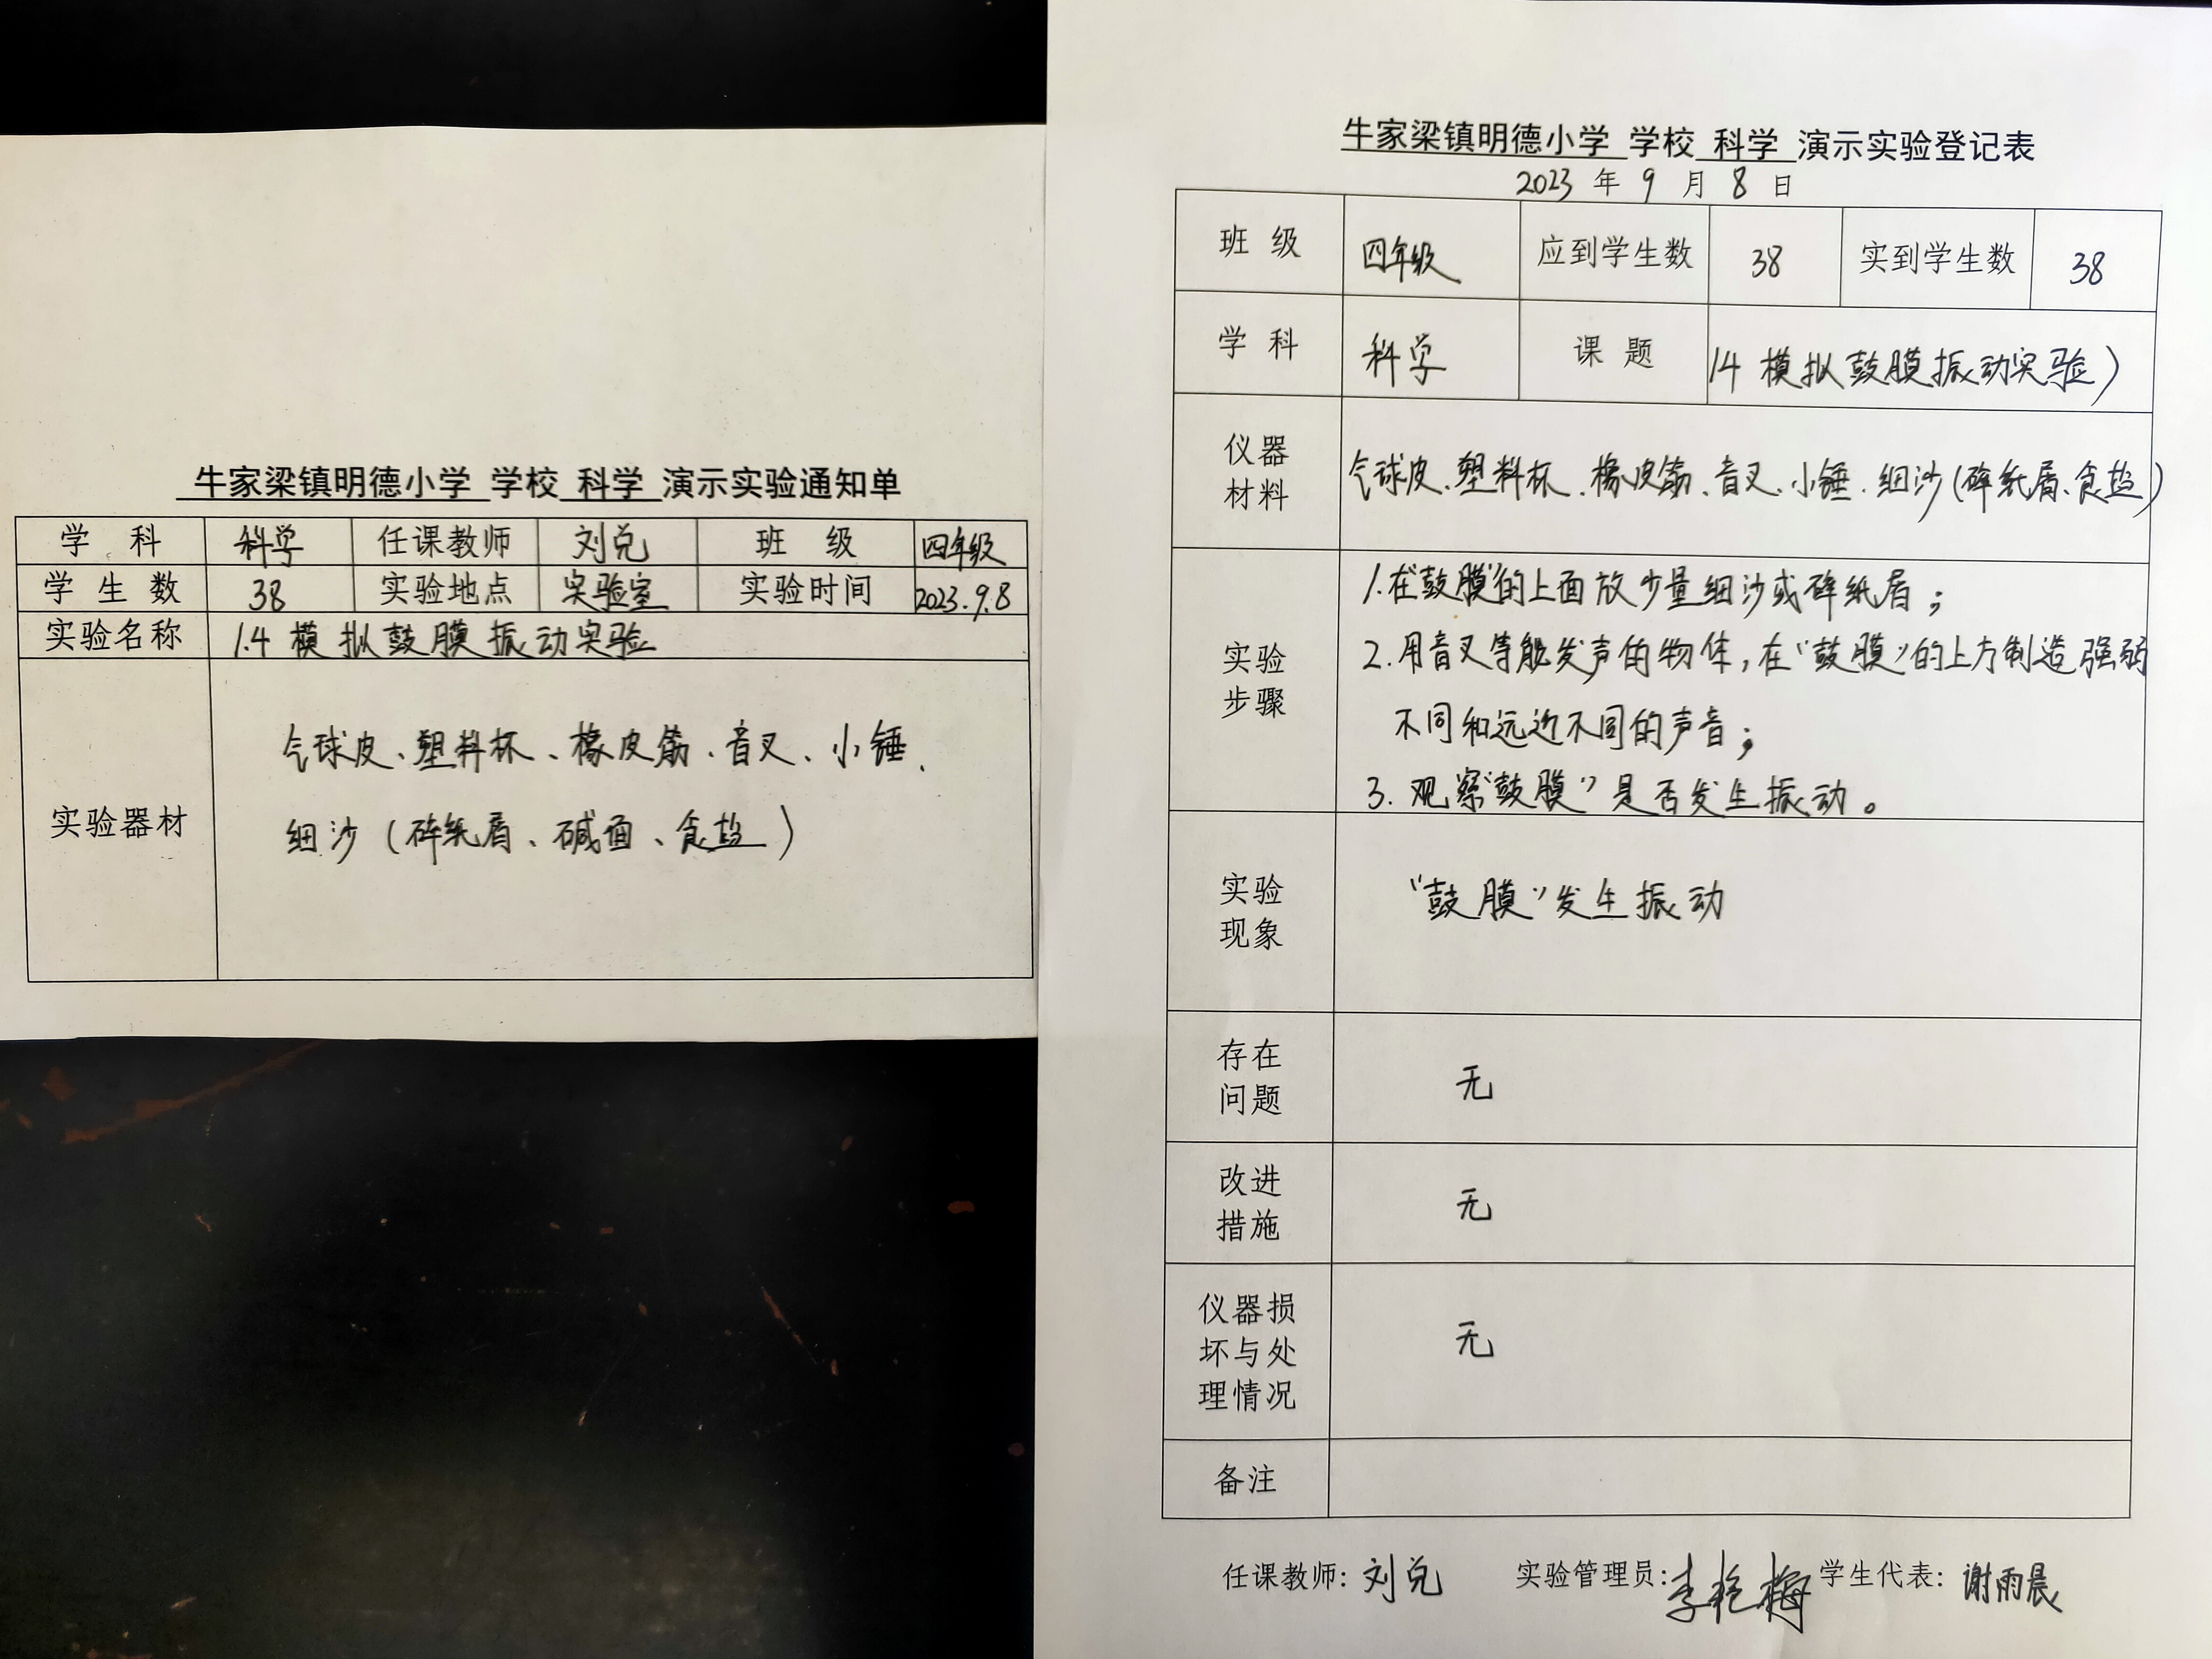 牛家梁镇明德小学 学校 科学 演示实验通知单
学 科 科学 任课教师 刘兑 班 级 四年级
学 生 数 38 实验地点 实验室 实验时间 2023.9.8
实验名称 1.4 模拟鼓膜振动实验
实验器材
气球皮、塑料杯、橡皮筋、音叉、小锤、
细沙(碎纸屑、碱面、食盐)
牛家梁镇明德小学 学校 科学 演示实验登记表
2023 年 9 月 8 日
班 级 四年级 应到学生数 38 实到学生数 38
学 科 科学 课 题 1.4 模拟鼓膜振动实验)
仪器
材料
气球皮、塑料杯、橡皮筋、音叉、小锤、细沙(碎纸屑、食盐)
实验
步骤
1.在“鼓膜”的上面放少量细沙或碎纸屑;
2.用音叉等能发声的物体,在“鼓膜”的上方制造强弱
不同和远近不同的声音;
3.观察“鼓膜”是否发生振动。
实验
现象
“鼓膜”发生振动
存在
问题
无
改进
措施
无
仪器损
坏与处
理情况
无
备注
任课教师: 刘兑 实验管理员: 李艳梅 学生代表: 谢雨晨